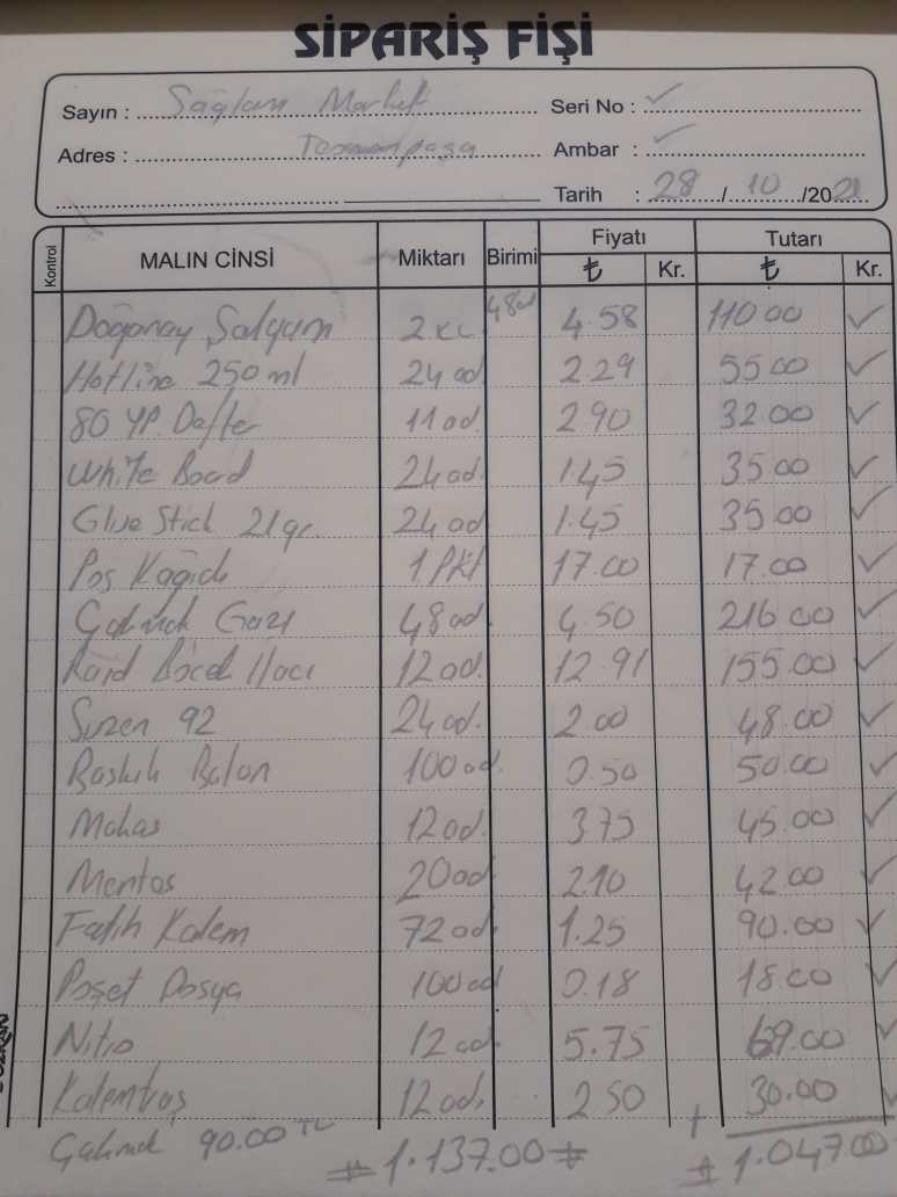 SİPARİŞ FİŞİ
Sayın : Sağlam Market Seri No : ✓
Adres : Ambar : ✓
Tarih : 28 / 10 /2021
Kontrol MALIN CİNSİ Miktarı Birimi Fiyatı ₺ Kr. Tutarı ₺ Kr.
Doğanay Şalgam 2 KL 48ad 4.58 110.00 ✓
Hotline 250 ml 24 ad 2.29 55.00 ✓
80 YP. Defter 11 ad. 2.90 32.00 ✓
White Board 24 ad. 1.45 35.00 ✓
Glue Stick 21 gr. 24 ad 1.45 35.00 ✓
Pos Kağıdı 1 Pkt 17.00 17.00 ✓
Çakmak Gazı 48 ad. 4.50 216.00 ✓
Raid Böcek İlacı 12 ad. 12.91 155.00 ✓
92 24 ad. 2.00 48.00 ✓
Baskılı Balon 100 ad. 0.50 50.00 ✓
Makas 12 ad. 3.75 45.00 ✓
Mentos 20 ad 2.10 42.00 ✓
Fatih Kalem 72 ad. 1.25 90.00 ✓
Poşet Dosya 100 ad 0.18 18.00 ✓
Nitro 12 ad. 5.75 69.00 ✓
Kalemtraş 12 ad. 2.50 30.00 ✓
Çakmak 90.00 TL # 1.137.00 # + 1.047.00